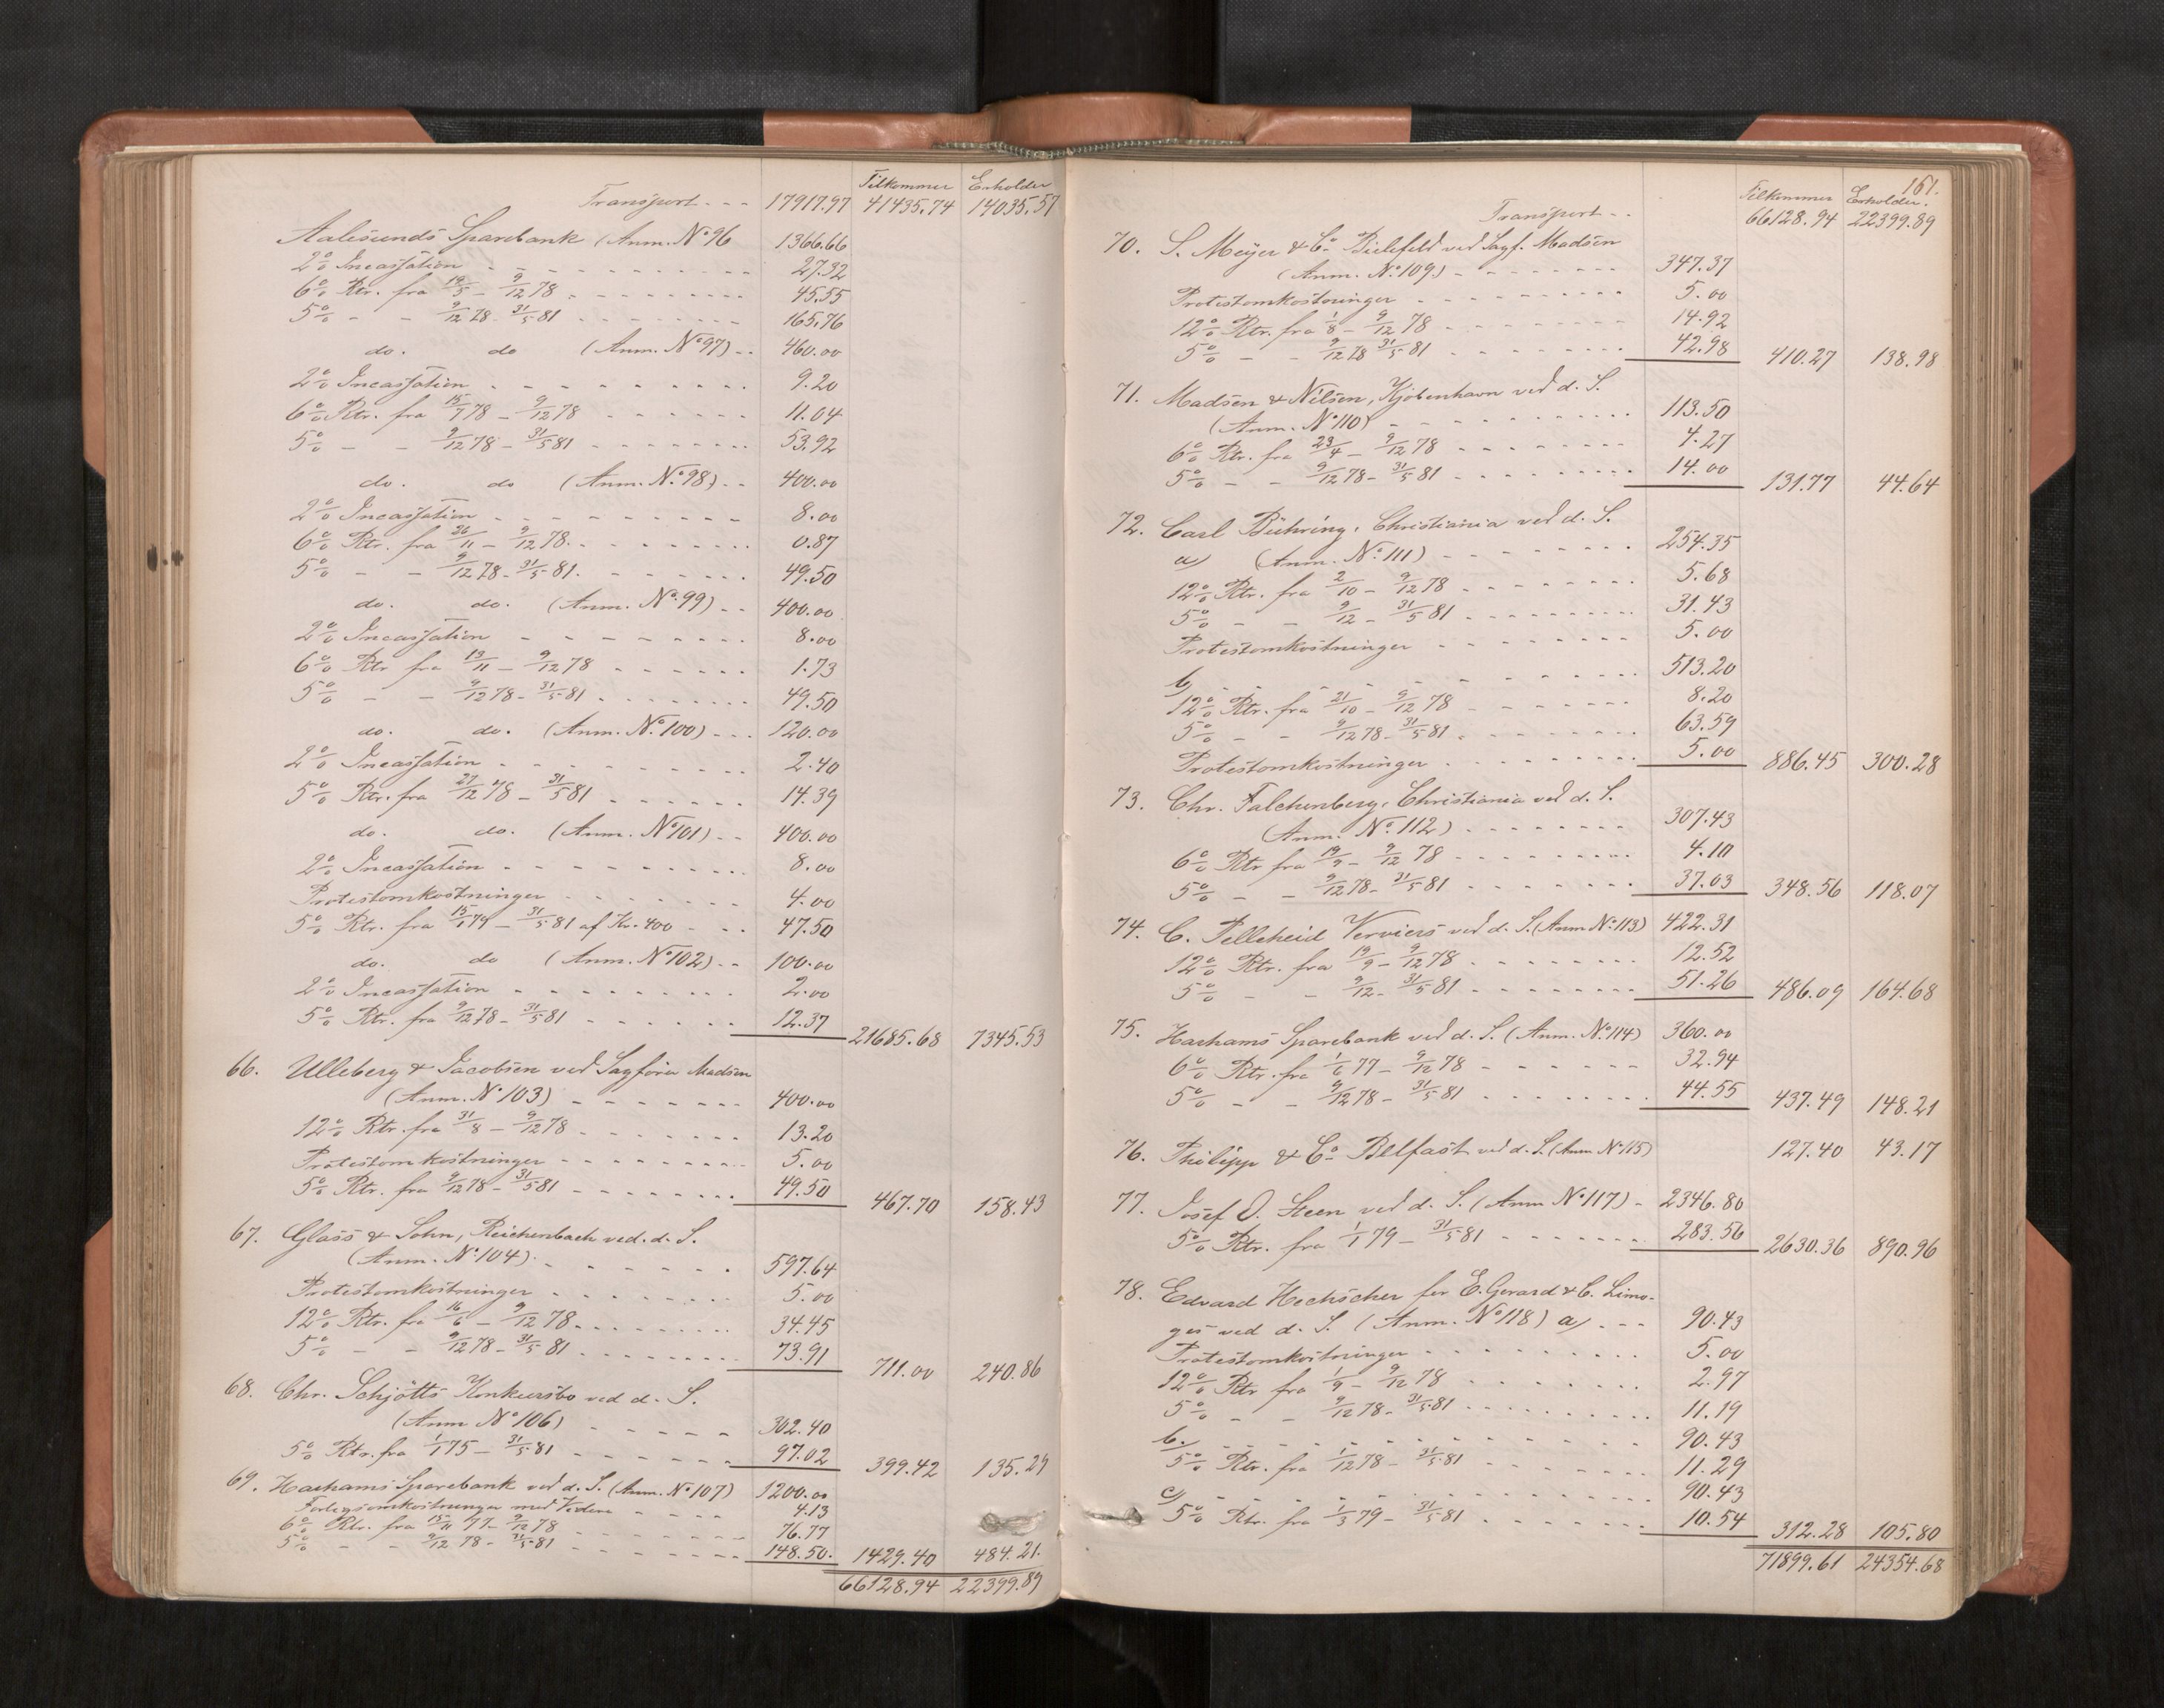 Tilkommer Erholder
Transport - - - 17917.97 41435.74 14035.57
Aalesunds Sparebank (Anm. No 96 1366.66
2% Incassation 27.32
6% Rtr. fra 19/5 - 9/12 78 45.55
5% - - 9/12 78 - 31/5 81 165.76
do. do (Anm. No 97) 460.00
2% Incassation 9.20
6% Rtr. fra 15/7 78 - 9/12 78 11.04
5% - - 9/12 78 - 31/5 81 53.92
do. do (Anm. No. 98) 400.00
2% Incassation 8.00
6% Rtr. fra 26/11 - 9/12 78 0.87
5% - - 9/12 78 - 31/5 81. 49.50
do. do. (Anm. No. 99) 400.00
2% Incassation 8.00
6% Rtr fra 13/11 - 9/12 78 1.73
5% - - 9/12 78 - 31/5 81 49.50
do. do. (Anm. No. 100) 120.00
2% Incassation 2.40
5% Rtr. fra 27/12 78 - 31/5 81 14.39
do. do. (Anm. No 101) 400.00
2% Incassation 8.00
Protestomkostninger 4.00
5% Rtr. fra 15/1 79 - 31/5 81 af Kr. 400 47.50
do. do (Anm. No 102) 100.00
2% Incassation 2.00
5% Rtr. fra 9/12 78 - 31/5 81 12.37 21685.68 7345.53
66. Ulleberg & Jacobsen ved Sagfører Madsen
(Anm. No 103) 400.00
12% Rtr. fra 31/8 - 9/12 78 13.20
Protestomkostninger 5.00
5% Rtr. fra 9/12 78 - 31/5 81 49.50 467.70 158.43
67. Glass & Sohn, Reichenbach ved. d. S.
(Anm. No. 104). 597.64
Protestomkostninger 5.00
12% Rtr. fra 16/6 - 9/12 78 34.45
5% - - 9/12 78 - 31/5 81 73.91 711.00 240.86
68. Chr. Schjøtts Konkursbo ved d. S.
(Anm No 106) 302.40
5% Rtr. fra 1/1 75 - 31/5 81 97.02 399.42 135.29
69. Harhams Sparebank ved d. S. (Anm. No 107) 1200.00
Forlegsomkostninger med Videre 4.13
6% Rtr. fra 15/11 77 - 9/12 78 76.77
5% - - 9/12 78 - 31/5 81 148.50. 1429.40 484.21.
66128.94 22399.89
161.
Tilkommer Erholder.
Transport - - 66128.94 22399.89
70. S. Meyer & Co. Bielefeld ved Sagf. Madsen
(Anm. No. 109) 347.37
Protestomkostninger 5.00
12% Rtr. fra 1/8 - 9/12 78 14.92
5% - - 9/12 78 31/5 81 42.98 410.27 138.98
71. Madsen & Nilsen, Kjøbenhavn ved d. S.
(Anm. No 110) 113.50
6% Rtr. fra 23/4 - 9/12 78 4.27
5% - - 9/12 78 - 31/5 81 14.00 131.77 44.64
72. Carl Bühring, Christiania ved d. S.
a) (Anm. No. 111) 254.35
12% Rtr. fra 2/10 - 9/12 78 5.68
5% - - 9/12 - 31/5 81 31.43
Protestomkostninger 5.00
b) 513.20
12% Rtr. fra 21/10 - 9/12 78 8.20
5% - - 9/12 78 - 31/5 81 63.59
Protestomkostninger 5.00 886.45 300.28
73. Chr. Falchenberg, Christiania ved d. S.
(Anm. No. 112) 307.43
6% Rtr fra 19/9 - 9/12 78 4.10
5% - - 9/12 78 - 31/5 81 37.03 348.56 118.07
74. C. Pelleheid Verviers ved d. S. (Anm No. 113) 422.31
12% Rtr. fra 19/9 - 9/12 78 12.52
5% - - 9/12 - 31/5 81 51.26 486.09 164.68
75. Harhams Sparebank ved d. S. (Anm. No. 114) 360.00
6% Rtr. fra 1/6 77 - 9/12 78 32.94
5% - - 9/12 78 - 31/5 81 44.55 437.49 148.21
76. Philipp & Co. Belfast ved d. S. (Anm No 115) 127.40 43.17
77. Josef O. Steen ved d. S. (Anm No 117) - 2346.80
5% Rtr. fra 1/1 79 - 31/5 81 283.56 2630.36 890.96
78. Edvard Heckscher for E. Gerard & C. Limo-
ges ved d. S. (Anm. No 118) a) 90.43
Protestomkostninger 5.00
12% Rtr fra 1/9 - 9/12 78 2.97
5% - - 9/12 78 - 31/5 81 11.19
b. 90.43
5% Rtr. fra 1/12 78 - 31/5 81 11.29
c) 90.43
5% Rtr. fra 1/3 79 - 31/5 81 10.54 312.28 105.80
71899.61 24354.68